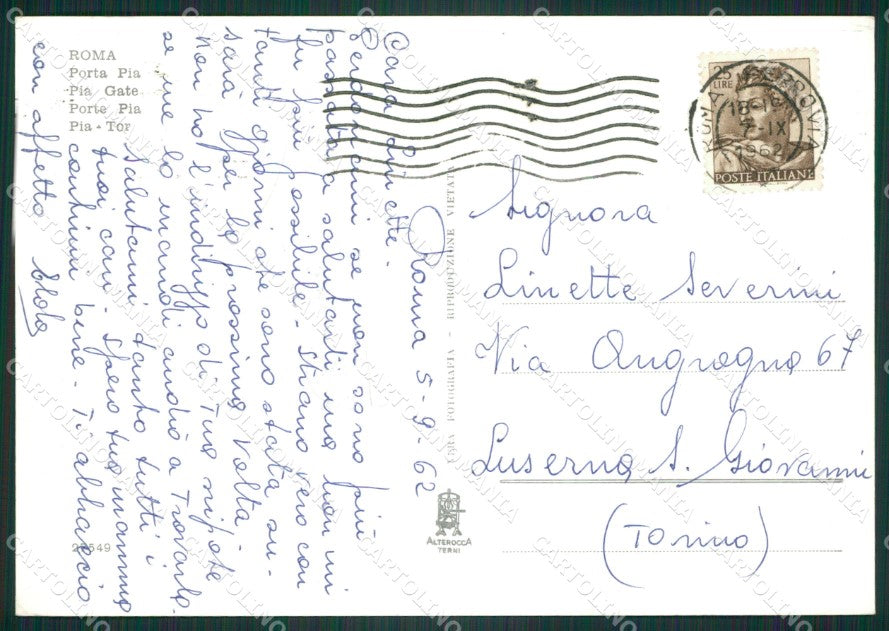 ROMA
Porta Pia
Pia Gate
Porte Pia
Pia - Tor
Roma 5-9-62
Cara Linette.
Perdonami se non sono più
passata a salutarti ma non mi
fu più possibile. Strano vero con
tanti giorni che sono stata su.
sarà per la prossima volta.
Non ho l'indirizzo di Tua nipote
se me lo mandi andrò a Trovarla.
Salutami tanto tutti i
tuoi cari. Spero tua mamma
continui bene. Ti abbraccio
con affetto
22549
VERA FOTOGRAFIA - RIPRODUZIONE VIETATA
ALTEROCCA
TERNI
25
LIRE
POSTE ITALIANE
ROMA FERROVIA
18-19
7-IX
1962
Signora
Linette Severini
Via Angrogna 67
Luserna S. Giovanni
(Torino)
CARTOLINOMANIA